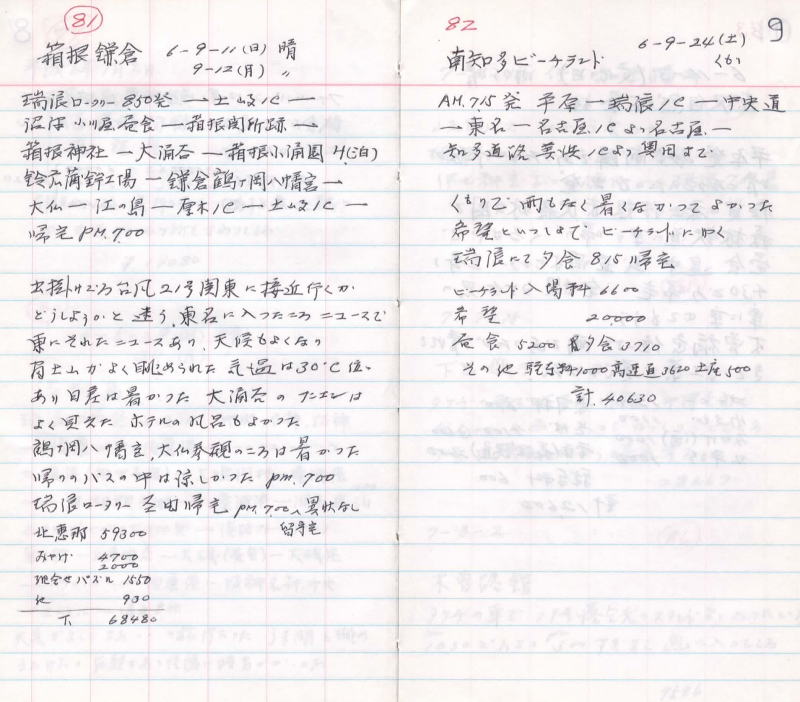 81
箱根 鎌倉 6-9-11(日) 晴
9-12(月) 〃
瑞浪ロータリー 850発 ー 土岐IC ー
沼津 小川屋昼食 ー 箱根関所跡 ー
箱根神社 ー 大涌谷 ー 箱根小涌園 4(泊)
鈴広蒲鉾工場 ー 鎌倉鶴ヶ岡八幡宮 ー
大仏 ー 江の島 ー 厚木IC ー 土岐IC ー
帰宅 PM.7.00
出掛けごろ台風21号関東に接近行くか
どうしようかと迷う、東名に入ったころニュースで
東にそれたニュースあり、天候もよくなり
富士山がよく眺められた 気温は30℃位
あり日差は暑かった 大涌谷の
よく見えた ホテルの風呂もよかった
鶴ヶ岡八幡宮、大仏参観のころは暑かった
帰りのバスの中は涼しかった pm.700
瑞浪ロータリー 帰宅 PM.7.00、異状なし
留守宅
北恵那 59300
みやげ 4700
2000
地合せパズル 1550
他 930
68480
82
9
南知多ビーチランド 6-9-24(土)
くもり
AM.7.15発 平原 ー 瑞浪IC ー 中央道
ー 東名 ー 名古屋ICより名古屋 ー
知多道路 美浜ICより奥田まで
くもりで雨もなく暑くなかつてよかつた
希望といつしよで ビーチランドに行く
瑞浪にて夕食 815帰宅
ビーチランド入場料 6600
希望 20,000
昼食 5200 夕食3710
その他 駐車料1000 高速道3620 土産500
計. 40630